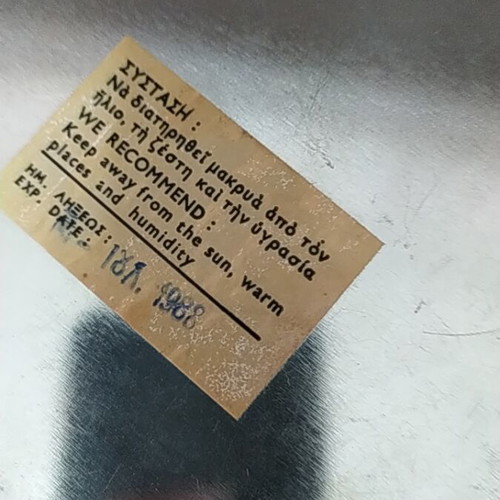 ΣΥΣΤΑΣΗ :
Νὰ διατηρηθεῖ μακρυὰ ἀπὸ τὸν
ἥλιο, τὴ ζέστη καὶ τὴν ὑγρασία
WE RECOMMEND :
Keep away from the sun, warm
places and humidity
ΗΜ. ΛΗΞΕΩΣ :
EXP. DATE :
ΙΟΥΛ. 1988